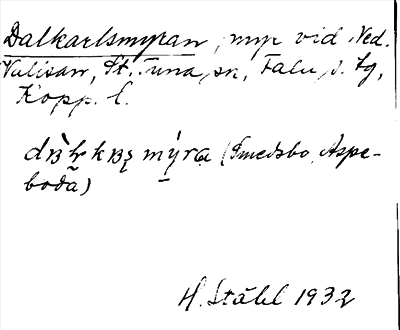 Dalkarlsmyran, myr vid Ned.
Vulisan, St. Tuna sn, Falu s. tg,
Kopp. l.
myra (Smedsbo, Aspe-
boda)
H. Ståhl 1932